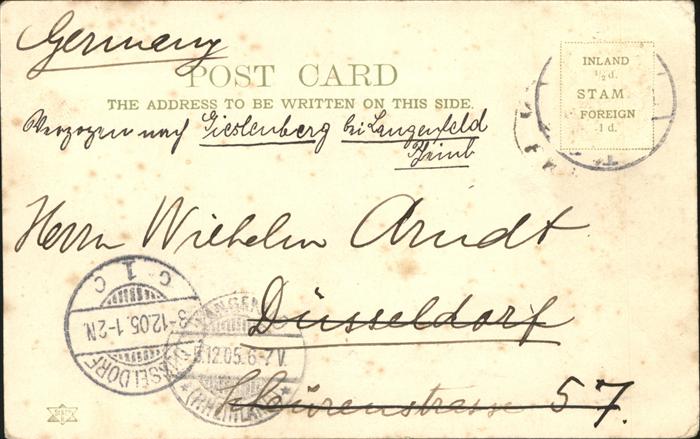 Germany
POST CARD
THE ADDRESS TO BE WRITTEN ON THIS SIDE.
INLAND
½ d.
STAM
FOREIGN
1 d.
Verzogen nach Gieslenberg bei Langenfeld
Herrn Wilhelm Arndt
Düsseldorf
Schürenstrasse 57.
SSELDORF
8-12.05.1-2N.
C 1 C
LANGEN
12.05.6-7V.
(RHEINLAND)